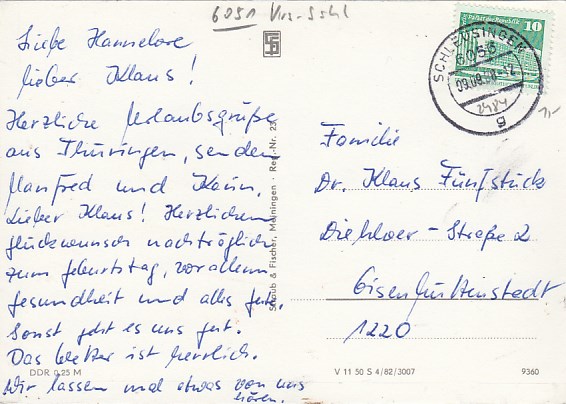 6051 Vrs-Sshl
Liebe Hannelore
lieber Klaus!
Herzliche Urlaubsgrüße
aus Thüringen, senden
Manfred und Karin.
Lieber Klaus! Herzlichen
glückwunsch nachträglich
zum geburtstag, vor allem
gesundheit und alles gute.
Sonst geht es uns gut.
Das Wetter ist herrlich.
Wir lassen mal etwas von uns
hören.
DDR 0.25 M
Straub & Fischer, Meiningen · Reg.-Nr. 23
10
SCHLEUSINGEN
6056
09.08.
g
Familie
Dr. Klaus Fünfstück
Diehloer-Straße 2
Eisenhüttenstadt
1220
V 11 50 S 4/82/3007
9360